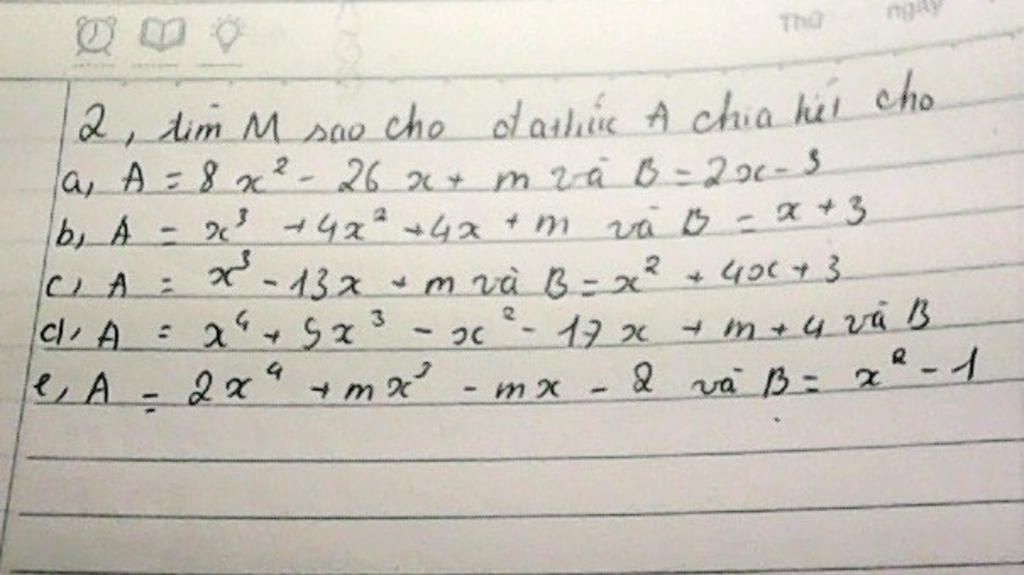 Thứ ngày
2, tìm M sao cho đa thức A chia hết cho
a, A = 8x² - 26x + m và B = 2x - 3
b, A = x³ + 4x² + 4x + m và B = x + 3
c, A = x³ - 13x + m và B = x² + 4x + 3
d, A = x⁴ + 5x³ - x² - 17x + m + 4 và B
e, A = 2x⁴ + mx³ - mx - 2 và B = x² - 1